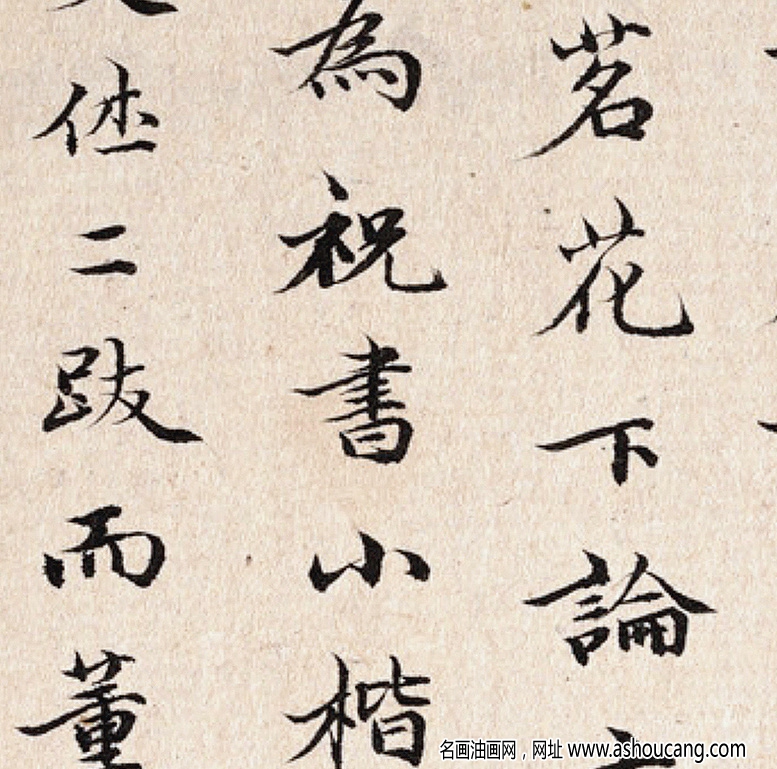 茗花下論
為祝書小楷
二跋而董
名画油画网，网址 www.ashoucang.com